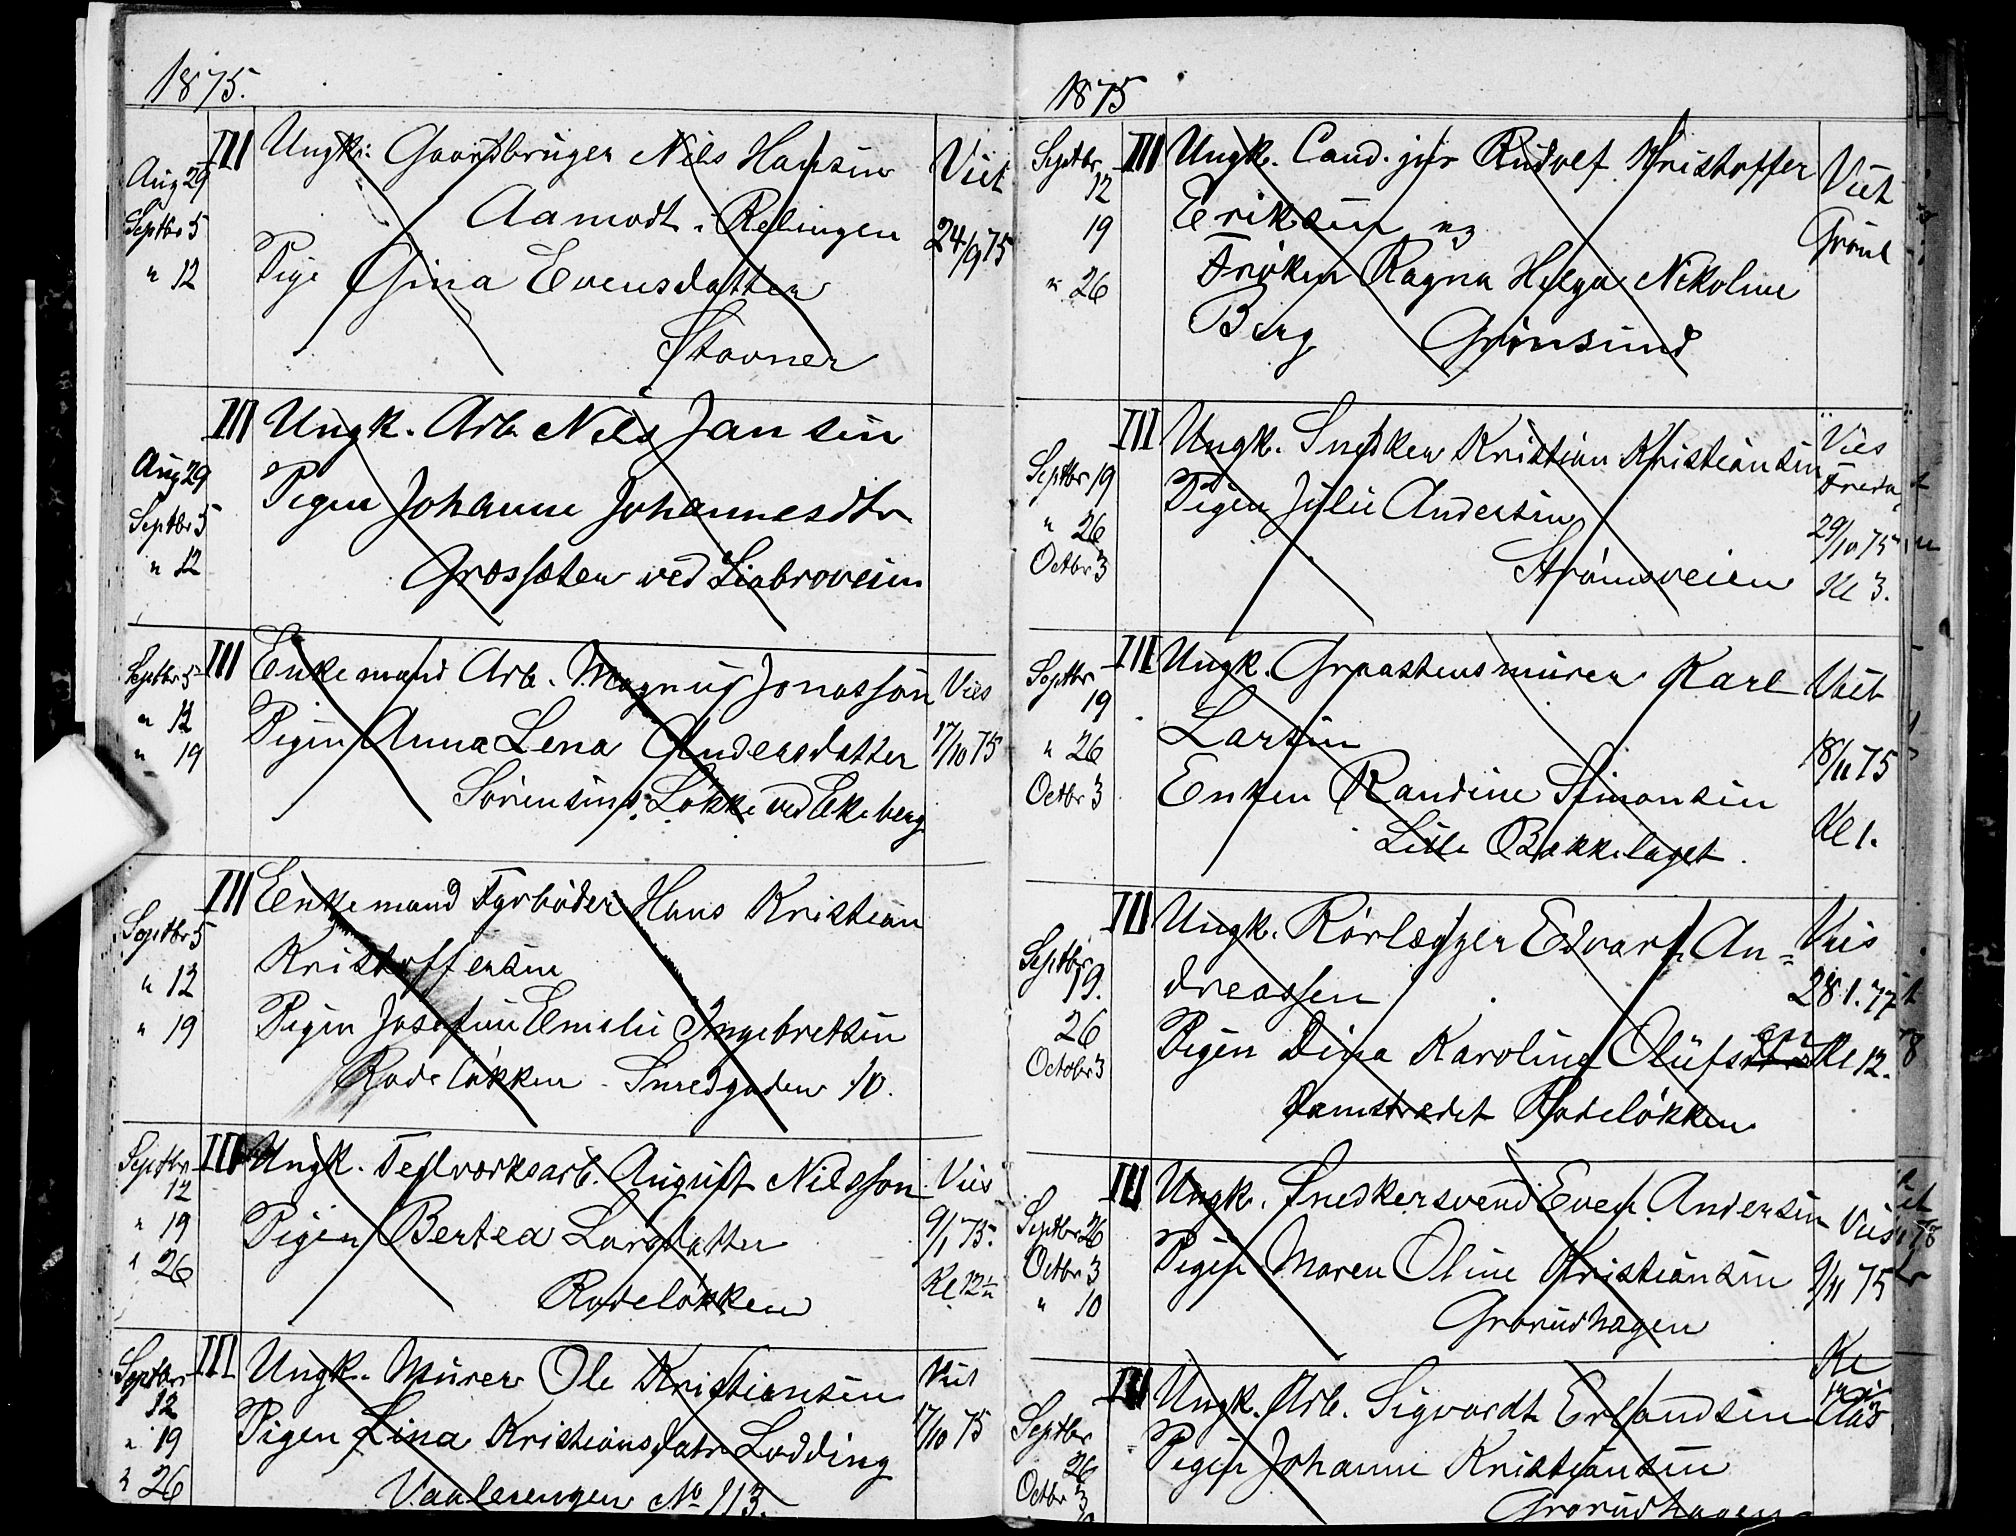 1875.
Aug 29
Septbr 5
" 12
III Ungk. Gaardbruger Nils Hansen
Aamodt. Relingen
Pige Gina Evensdatter
Stovner
Viet
24/9 75
Aug 29
Septbr 5
" 12
III Ungk. Arb. Nils Jansen
Pigen Johanne Johannesdtr
Græssæter ved Liabroveien
Septbr 5
" 12
" 19
III Enkemand Arb. Magnus Jonasson
Pigen Anna Lena Andersdatter
Sørensens Løkke ved Ekeberg
Vies
17/10 75
Septbr 5
" 12
" 19
III Enkemand Fyrbøder Hans Kristian
Kristoffersen
Pigen Josefine Emilie Ingebretsen
Rodeløkken. Smedgaden 10.
Septbr
12
" 19
" 26
III Ungk. Teglværksarb. August Nilsson
Pigen Bertea Larsdatter
Rodeløkken
Vies
9/1 75.
Kl 12½
Septbr
12
" 19
" 26
III Ungk. Murer Ole Kristiansen
Pigen Lina Kristiansdatr Lodding
Vaalerengen No 113.
Viet
17/10 75
1875
Septbr
12
19
" 26
III Ungk. Cand. jur Rudolf Kristoffer
Eriksen og
Frøken Ragna Helga Nikoline
Berg Grønsund
Viet
Grønl
Septbr 19
" 26
Octbr 3
III Ungk. Snedker Kristian Kristiansen
Pigen Julie Andersen
Strømsveien
Vies
Freda
29/10 75
Kl 3.
Septbr
19
" 26
Octbr 3
III Ungk. Graastensmurer Karl
Larsen
Enken Randine Simonsen
Lille Bækkelaget.
Viet
18/11 75
Kl 1.
Septbr
19.
26
Octobr 3
III Ungk. Rørlægger Edvart An=
dreassen
Pigen Dina Karoline Olufsen
Damstrædet Rodeløkken
Vies
28 1. 77
Kl 12.
Septbr 26
Octbr 3
" 10
III Ungk. Snedkersvend Even Andersen
Pigen Maren Oline Kristiansen
Grorudhagen
Vies
9/11 75
Kl
Septbr
26
Octbr 3
III Ungk. Arb. Sigvardt Erlandsen
Pigen Johanne Kristiansen
Grorudhagen